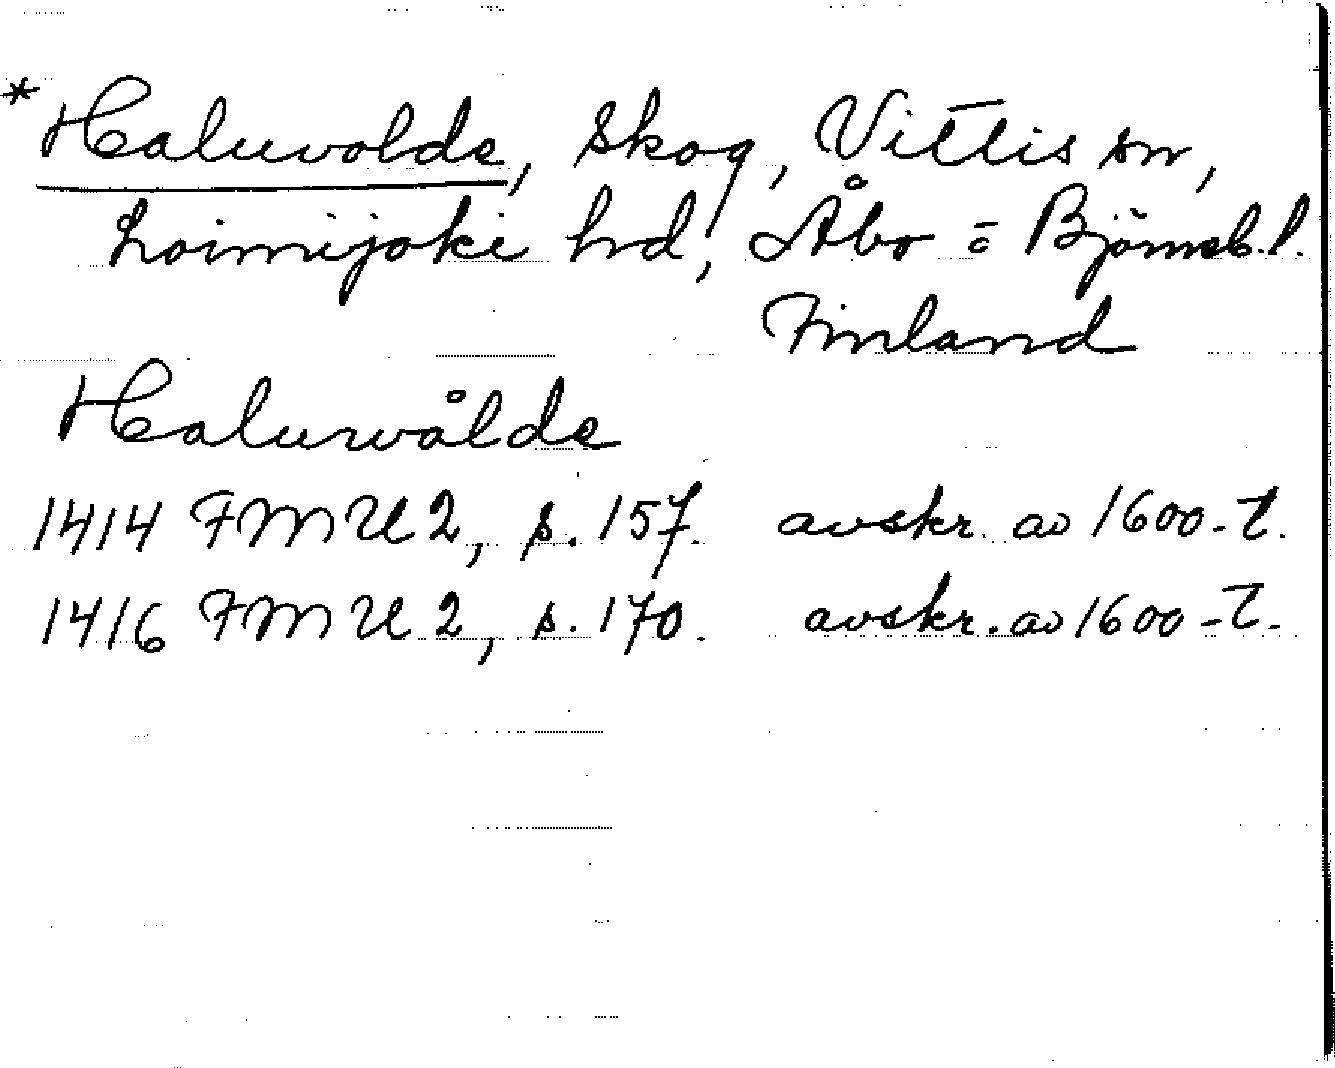 * Haluvolde, skog, Vittis sn,
Loimijoki hd, Åbo o Björneb. l.
Finland
Haluwålde
1414 FMU 2, s. 157. avskr. av 1600-t.
1416 FMU 2, s. 170. avskr. av 1600-t.